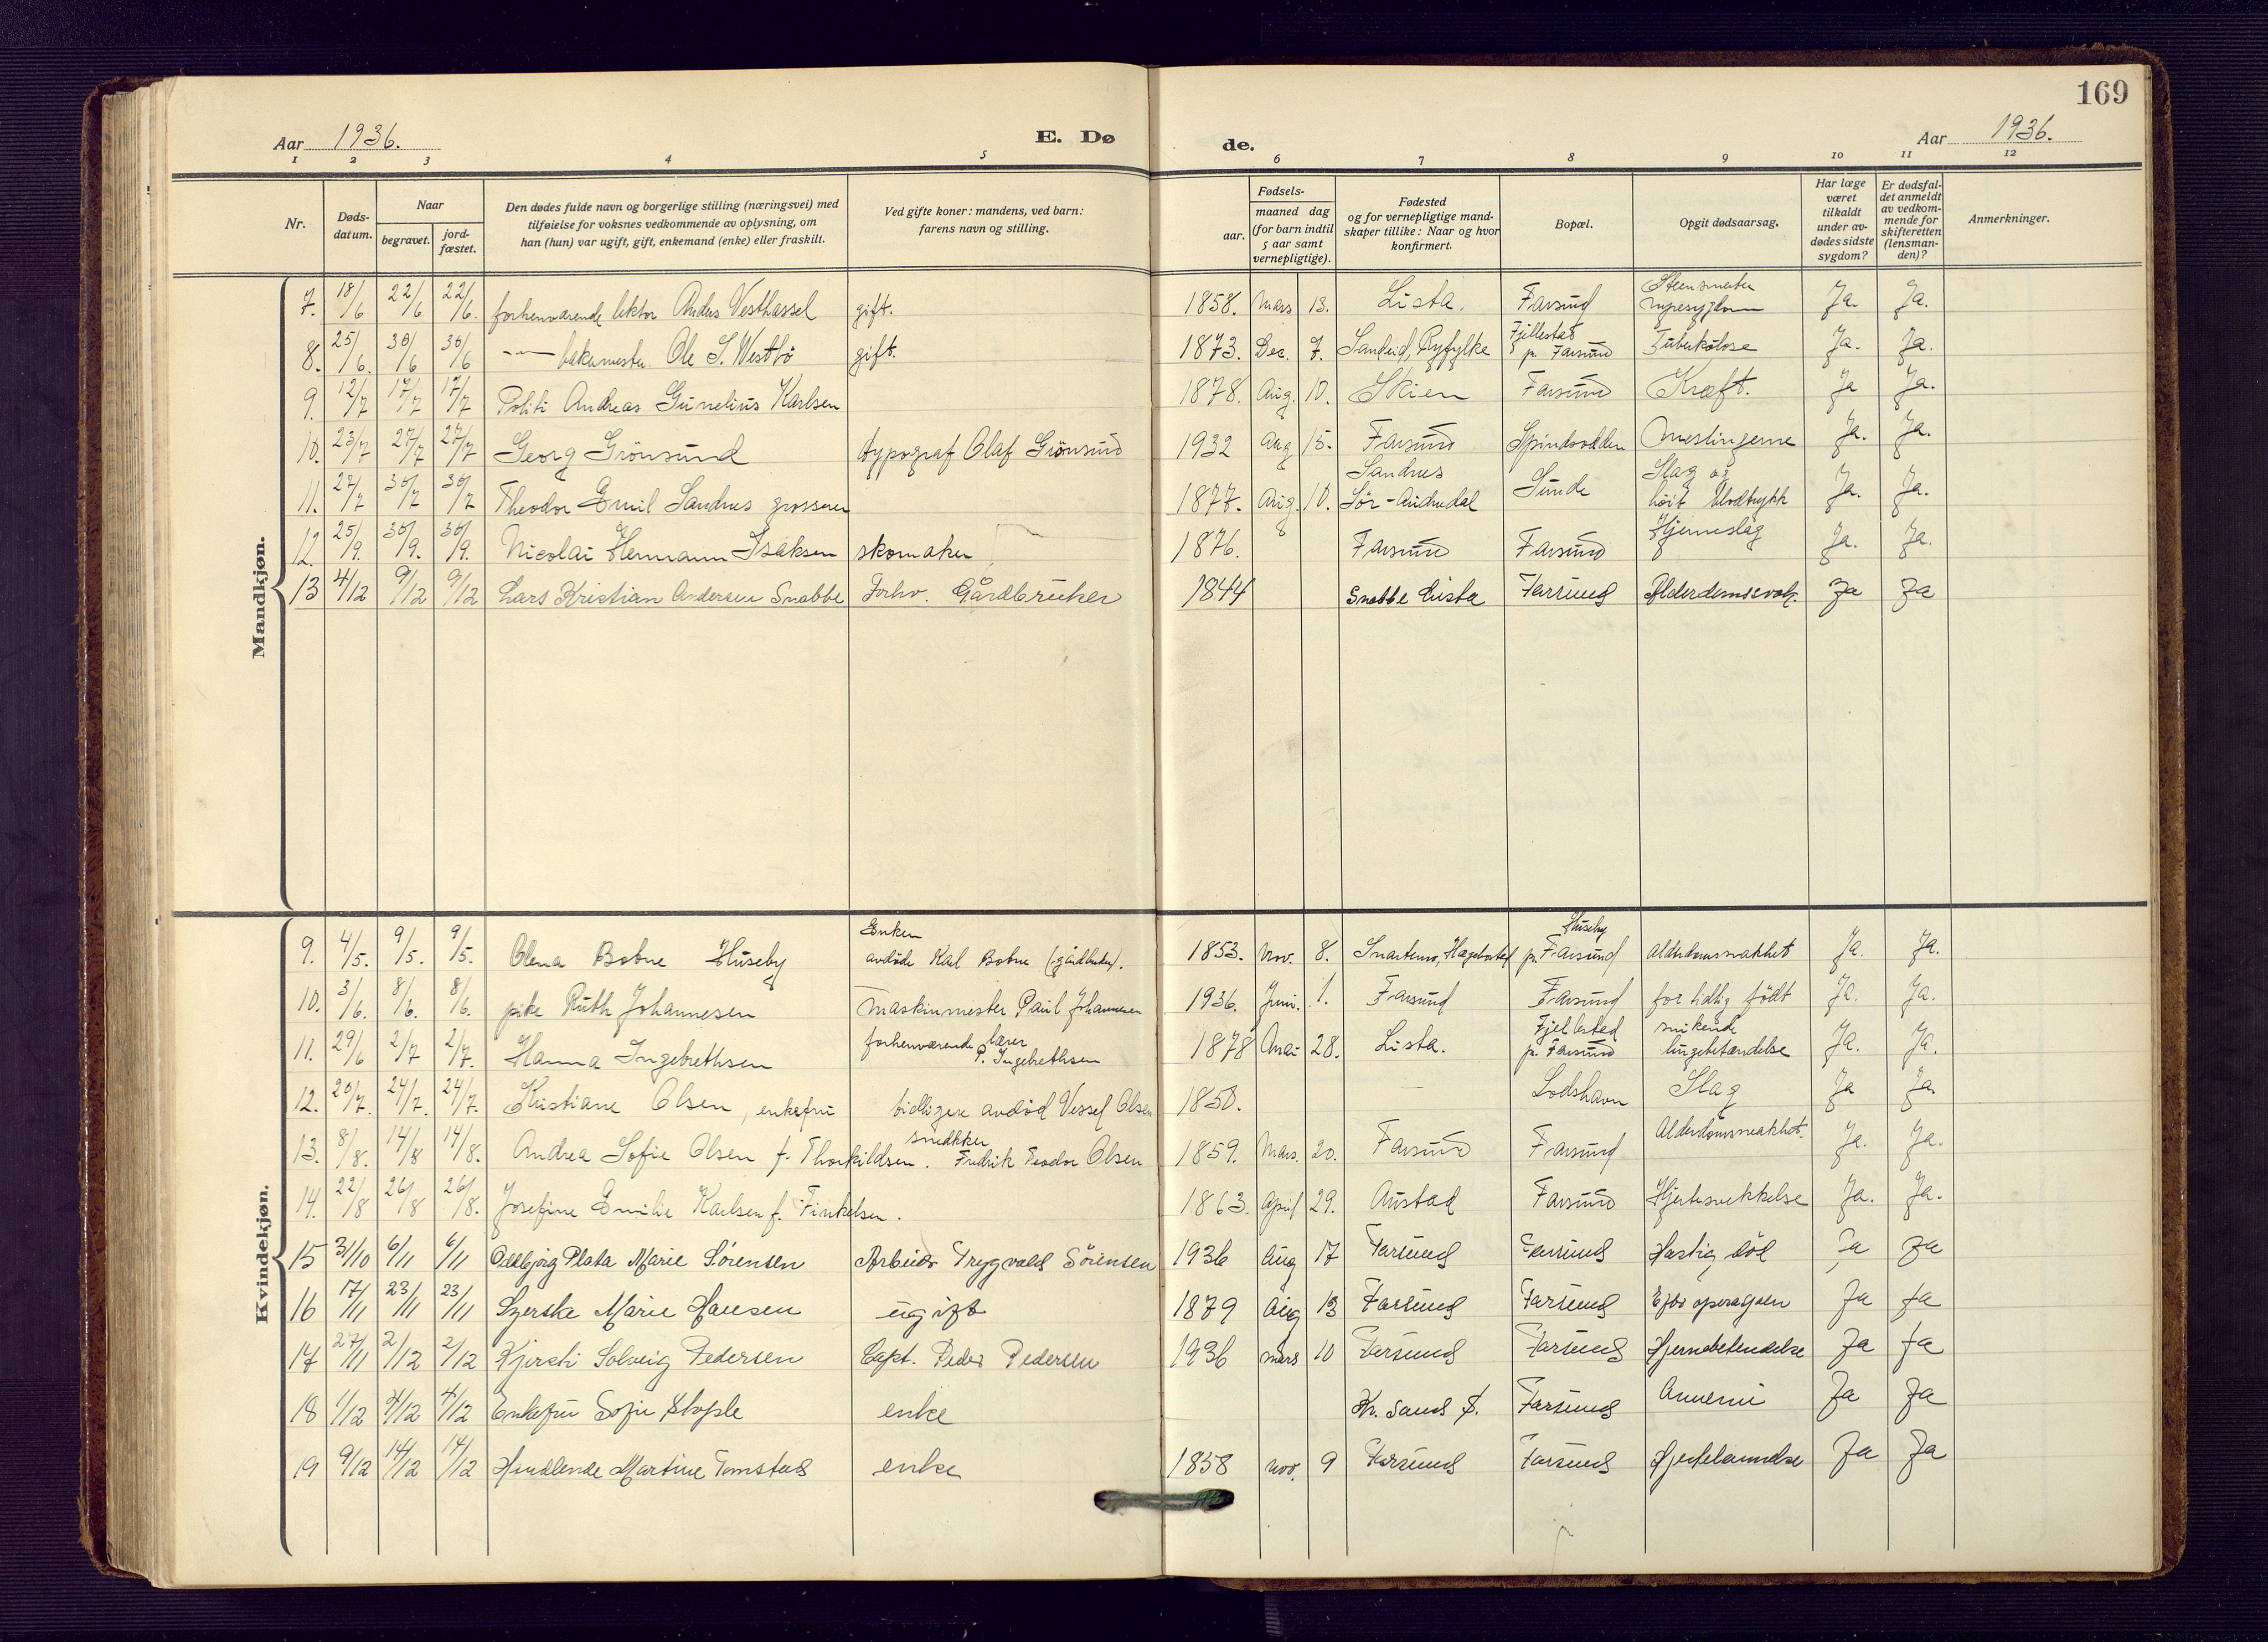 169
Aar 1936. E. Dø de. Aar 1936.
1 2 3 4 5 6 7 8 9 10 11 12
Nr.
Døds-
datum.
Naar
begravet.
jord-
fæstet.
Den dødes fulde navn og borgerlige stilling (næringsvei) med
tilføielse for voksnes vedkommende av oplysning, om
han (hun) var ugift, gift, enkemand (enke) eller fraskilt.
Ved gifte koner: mandens, ved barn:
farens navn og stilling.
Fødsels-
aar.
maaned dag
(for barn indtil
5 aar samt
vernepligtige).
Fødested
og for vernepligtige mand-
skaper tillike: Naar og hvor
konfirmert.
Bopæl.
Opgit dødsaarsag.
Har læge
været
tilkaldt
under av-
dødes sidste
sygdom?
Er dødsfal-
det anmeldt
av vedkom-
mende for
skifteretten
(lensman-
den)?
Anmerkninger.
Mandkjøn.
7. 18/6 22/6 22/6. forhenværende lektor Anders Vesthassel gift. 1858. Mars 13. Lista. Farsund nyresygdom Ja. Ja.
8. 25/6. 30/6 30/6 —"— bakermester Ole S. Westbö gift. 1873. Dec. 7. Sandeid, Ryfylke Fjellestad p. Farsund Tuberkulose Ja. Ja.
9. 12/7 17/7 17/7 Politi Andreas Gunelius Karlsen 1878. Aug. 10. Skien Farsund Kræft. Ja Ja.
10. 23/7 27/7 27/7 Georg Grönsund typograf Olaf Grönsund 1932 Aug 15. Farsund Spindsodden Meslingerne Ja. Ja.
11. 27/7 30/7 30/7 Theodor Emil Sandnes grosserer 1877. Aug. 10. Sandnes Sör-Audnedal Sunde Slag og höit blodtrykk Ja. Ja.
12. 25/9. 30/9. 30/9. Nicolai Hermann Isaksen skomaker 1876. Farsund Farsund Hjerneslag Ja. Ja.
13 4/12 9/12 9/12 Lars Kristian Andersen Snabbe Forhv. Gårdbruker 1844 Snabbe Lista Farsund Alderdomssvak. Ja Ja
Kvindekjøn.
9. 4/5. 9/5. 9/5. Olena Botne Huseby Enken avdöde Karl Botne (gårdbruker). 1853. Nov. 8. Snartemo, Hægebostad Huseby p. Farsund Alderdomssvakhet Ja. Ja.
10. 3/6. 8/6. 8/6. pike Ruth Johannesen Maskinmester Paul Johannesen 1936. Juni. 1. Farsund Farsund for tidlig födt Ja. Ja.
11. 29/6 2/7 2/7. Hanna Ingebrethsen forhenværende lærer P. Ingebrethsen 1878 Mai 28. Lista. Fjellestad p. Farsund snikende lungebetændelse Ja. Ja.
12. 20/7. 24/7. 24/7. Kristiane Olsen, enkefru tidligere avdöd Vessel Olsen 1850. Lodshavn Slag Ja Ja.
13. 8/8. 14/8 14/8. Andrea Sofie Olsen f. Thorkildsen. snedkker Fredrik Teodor Olsen 1859. Mars. 20. Farsund Farsund Alderdomssvakhet. Ja. Ja.
14. 22/8 26/8 26/8. Josefine Emilie Karlsen f. Finkelsen. 1863. April 29. Austad Farsund Hjertesvekkelse Ja. Ja.
15 31/10 6/11 6/11 Oddbjörg Plata Marie Sörensen Arbeider Trygvald Sörensen 1936 Aug 17 Farsund Farsund Hastig död Ja Ja
16 17/11 23/11 23/11 Syerske Marie Hansen ugift 1879 Aug 13 Farsund Farsund Efter operasjon Ja Ja
17 27/11 2/12 2/12 Kjersti Solveig Pedersen Capt. Peder Pedersen 1936 mars 10 Farsund Farsund Hjernebetendelse Ja Ja
18 1/12 4/12 4/12 Enkefru Sofie Stople enke Kr. sand S. Farsund Annemi Ja Ja
19 9/12 14/12 14/12 Handlende Martine Tomstad enke 1858 nov. 9 Farsund Farsund Hjertelammelse Ja Ja